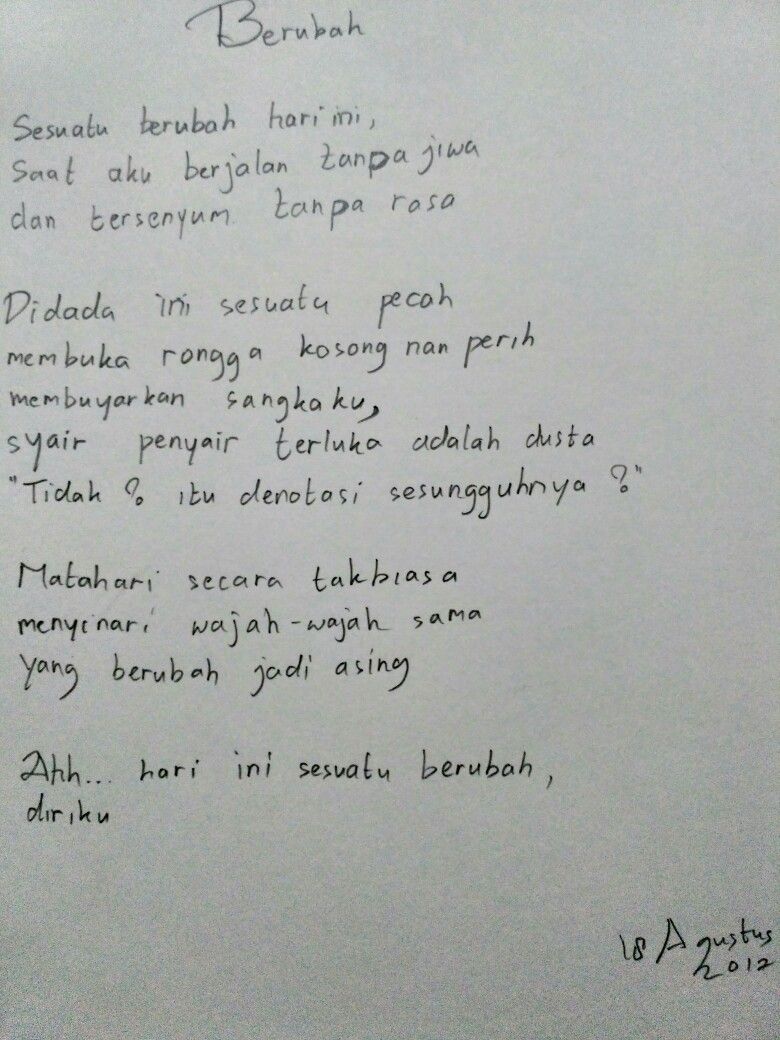 Berubah
Sesuatu berubah hari ini,
Saat aku berjalan tanpa jiwa
dan tersenyum tanpa rasa
Didada ini sesuatu pecah
membuka rongga kosong nan perih
membuyarkan sangkaku,
syair penyair terluka adalah dusta
"Tidak ? itu denotasi sesungguhnya ?"
Matahari secara takbiasa
menyinari wajah-wajah sama
yang berubah jadi asing
Ahh... hari ini sesuatu berubah,
diriku
18 Agustus
2012